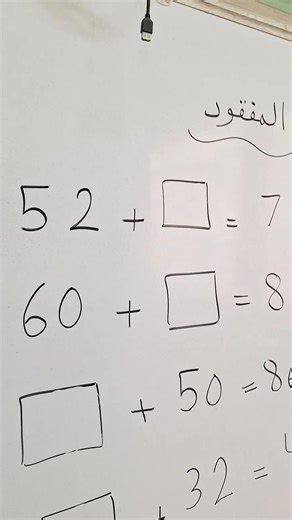 المفقود
52 + □ = 7
60 + □ = 8
□ + 50 = 8
□ + 32 =